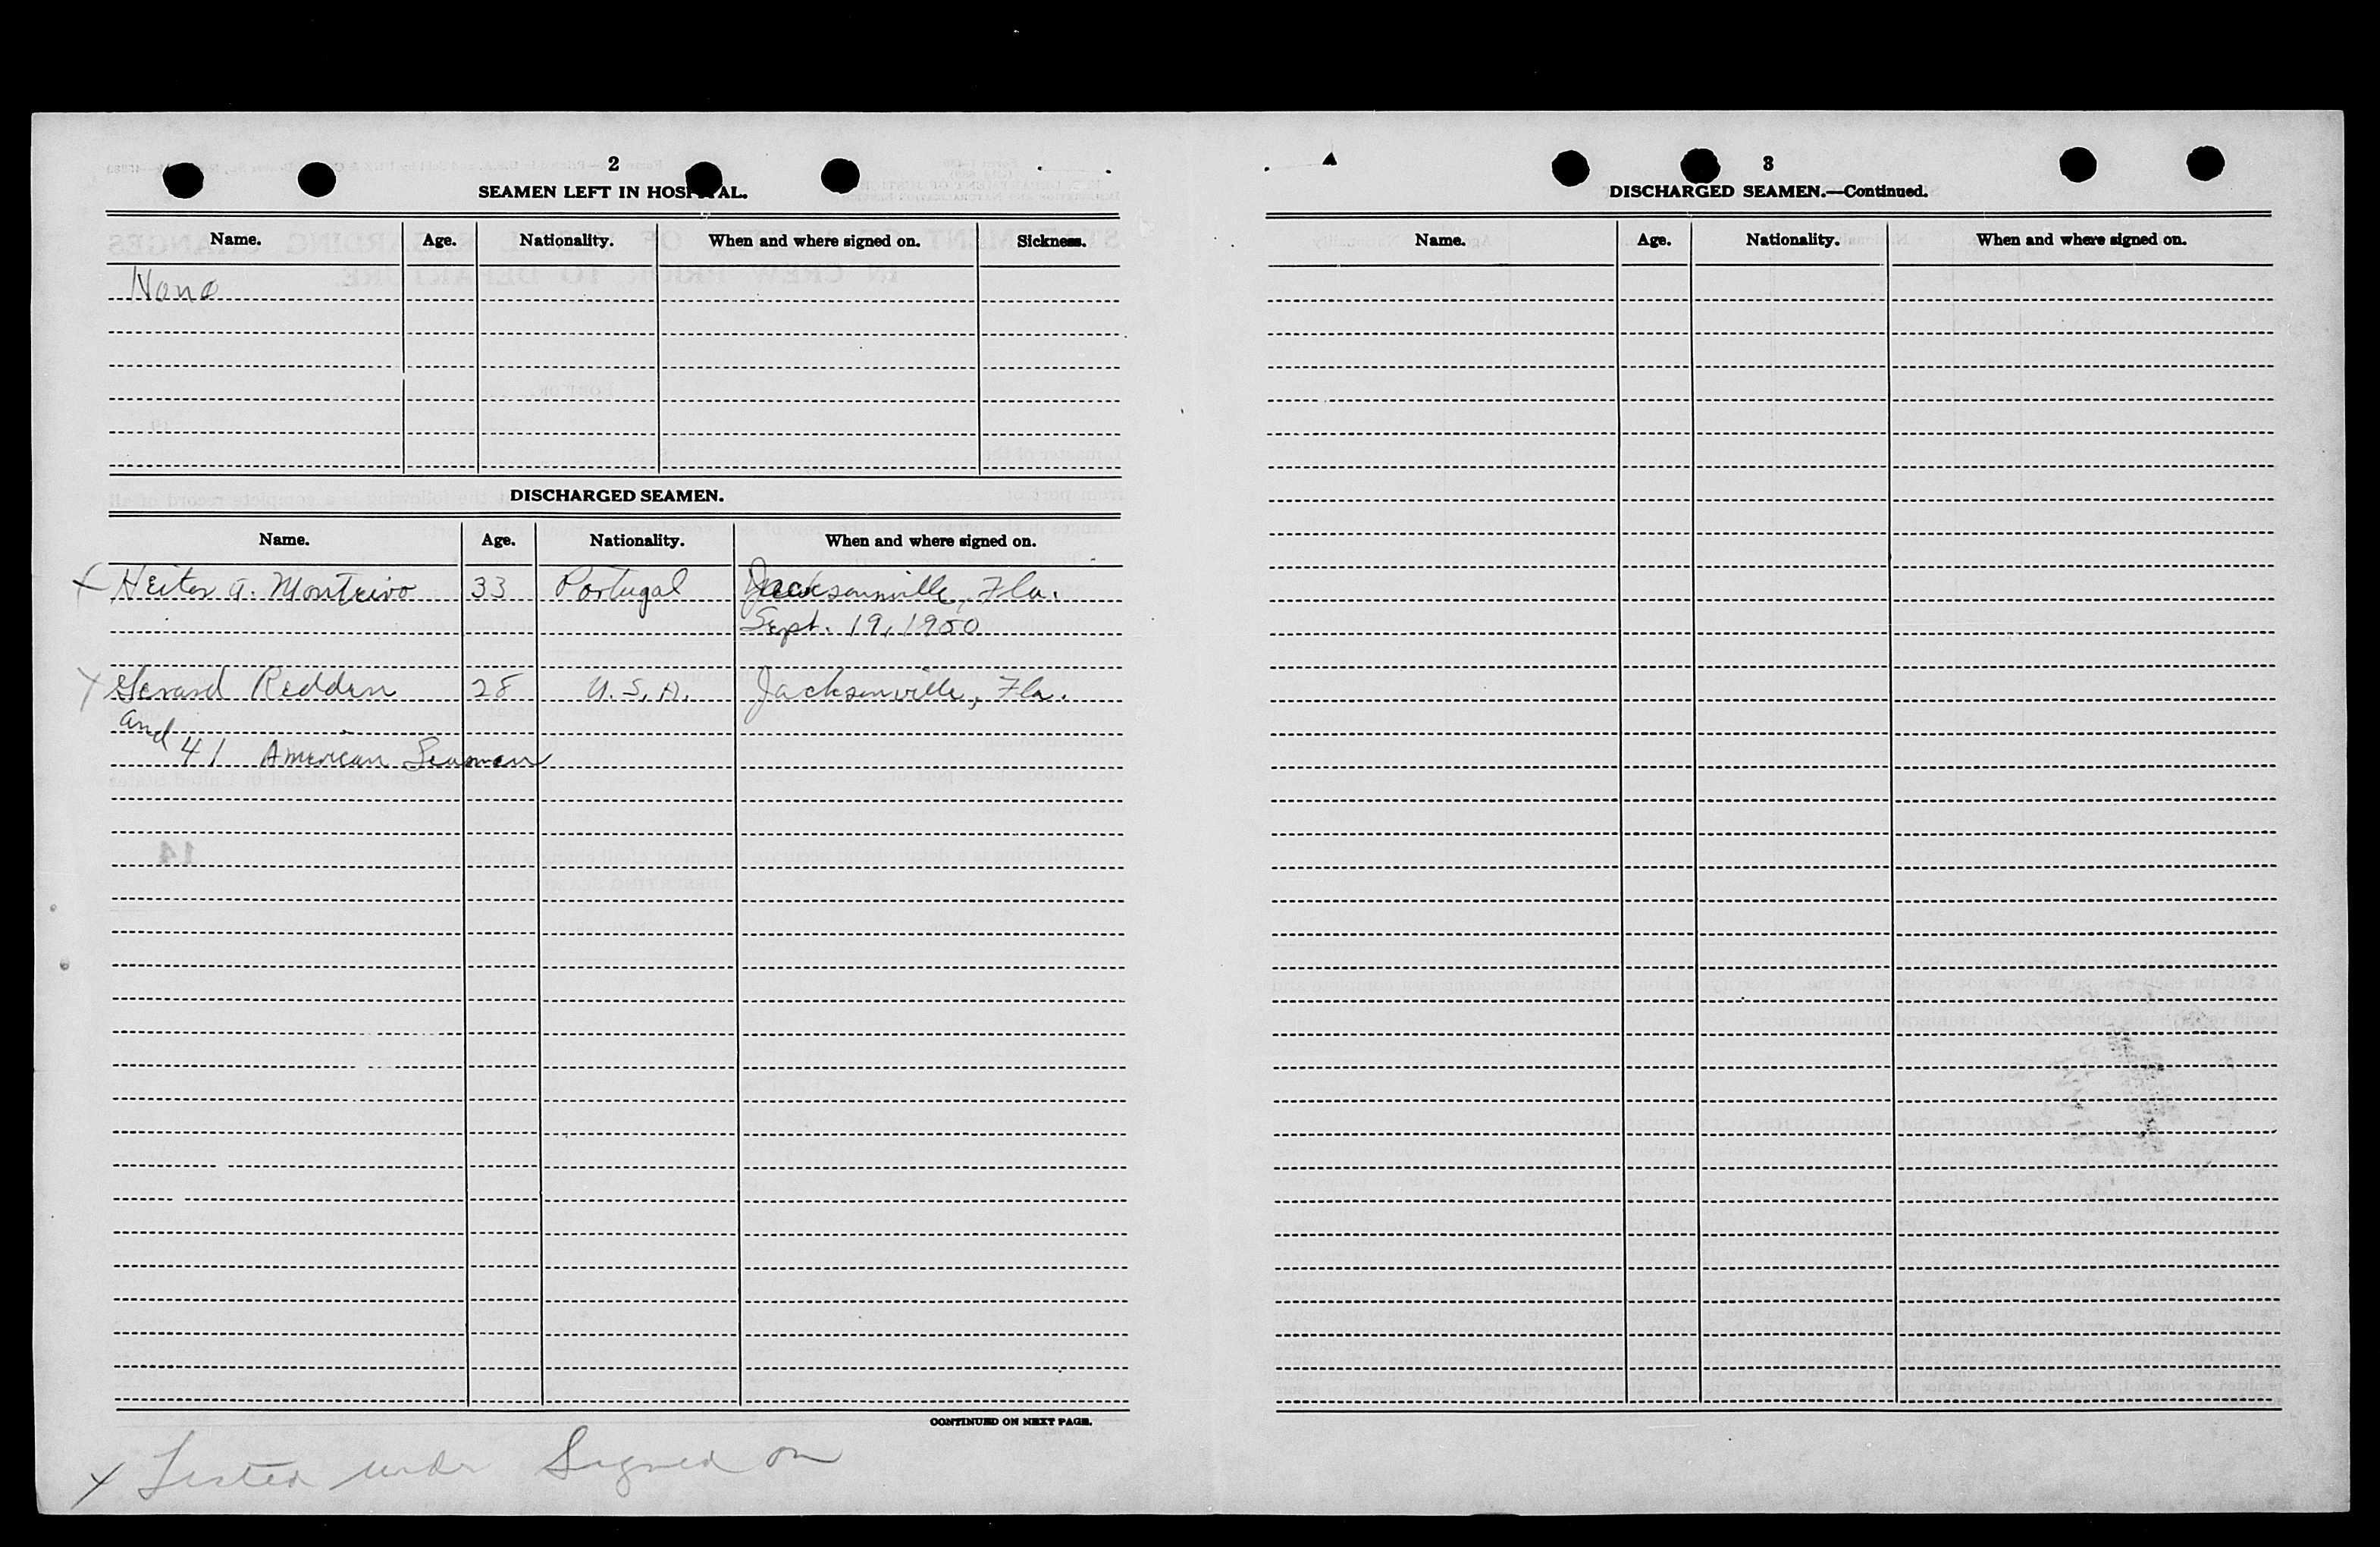 2
SEAMEN LEFT IN HOSPITAL.
Name. Age. Nationality. When and where signed on. Sickness.
None
DISCHARGED SEAMEN.
Name. Age. Nationality. When and where signed on.
x Heitor A. Monteiro 33 Portugal Jacksonville, Fla.
Sept. 19, 1950
x Gerard Redden 28 U.S.A. Jacksonville, Fla.
and
41 American Seamen
CONTINUED ON NEXT PAGE.
x Listed under Signed on
3
DISCHARGED SEAMEN.—Continued.
Name. Age. Nationality. When and where signed on.